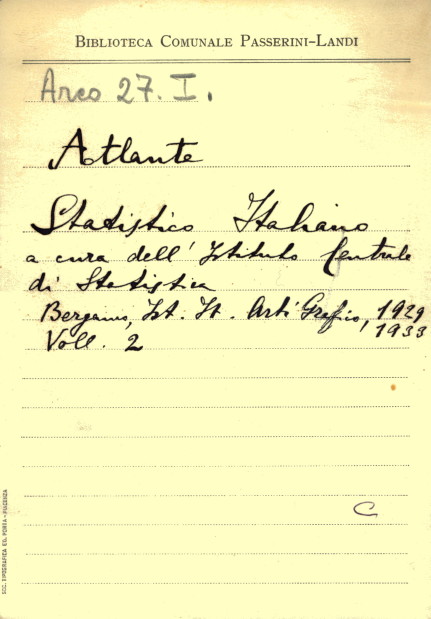 BIBLIOTECA COMUNALE PASSERINI-LANDI
Arco 27. I.
Atlante
Statistico Italiano
a cura dell'Istituto Centrale
di Statistica
Bergamo, Ist. It. Arti Grafic, 1929
, 1933
Voll. 2
C
SOC. TIPOGRAFICA ED. PORTA - PIACENZA